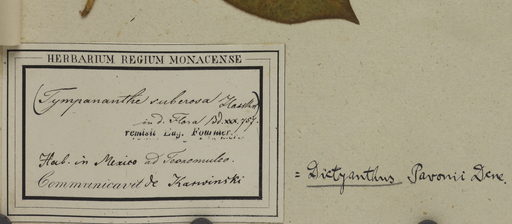 HERBARIUM REGIUM MONACENSE
(Tympananthe suberosa Hasskl)
in d. Flora Bd. XXX. 757.
remisit Eug. Fournier.
Herb. in Mexico ad
Communicavit de Karwinski
= Dictyanthus Pavonii Dcne.